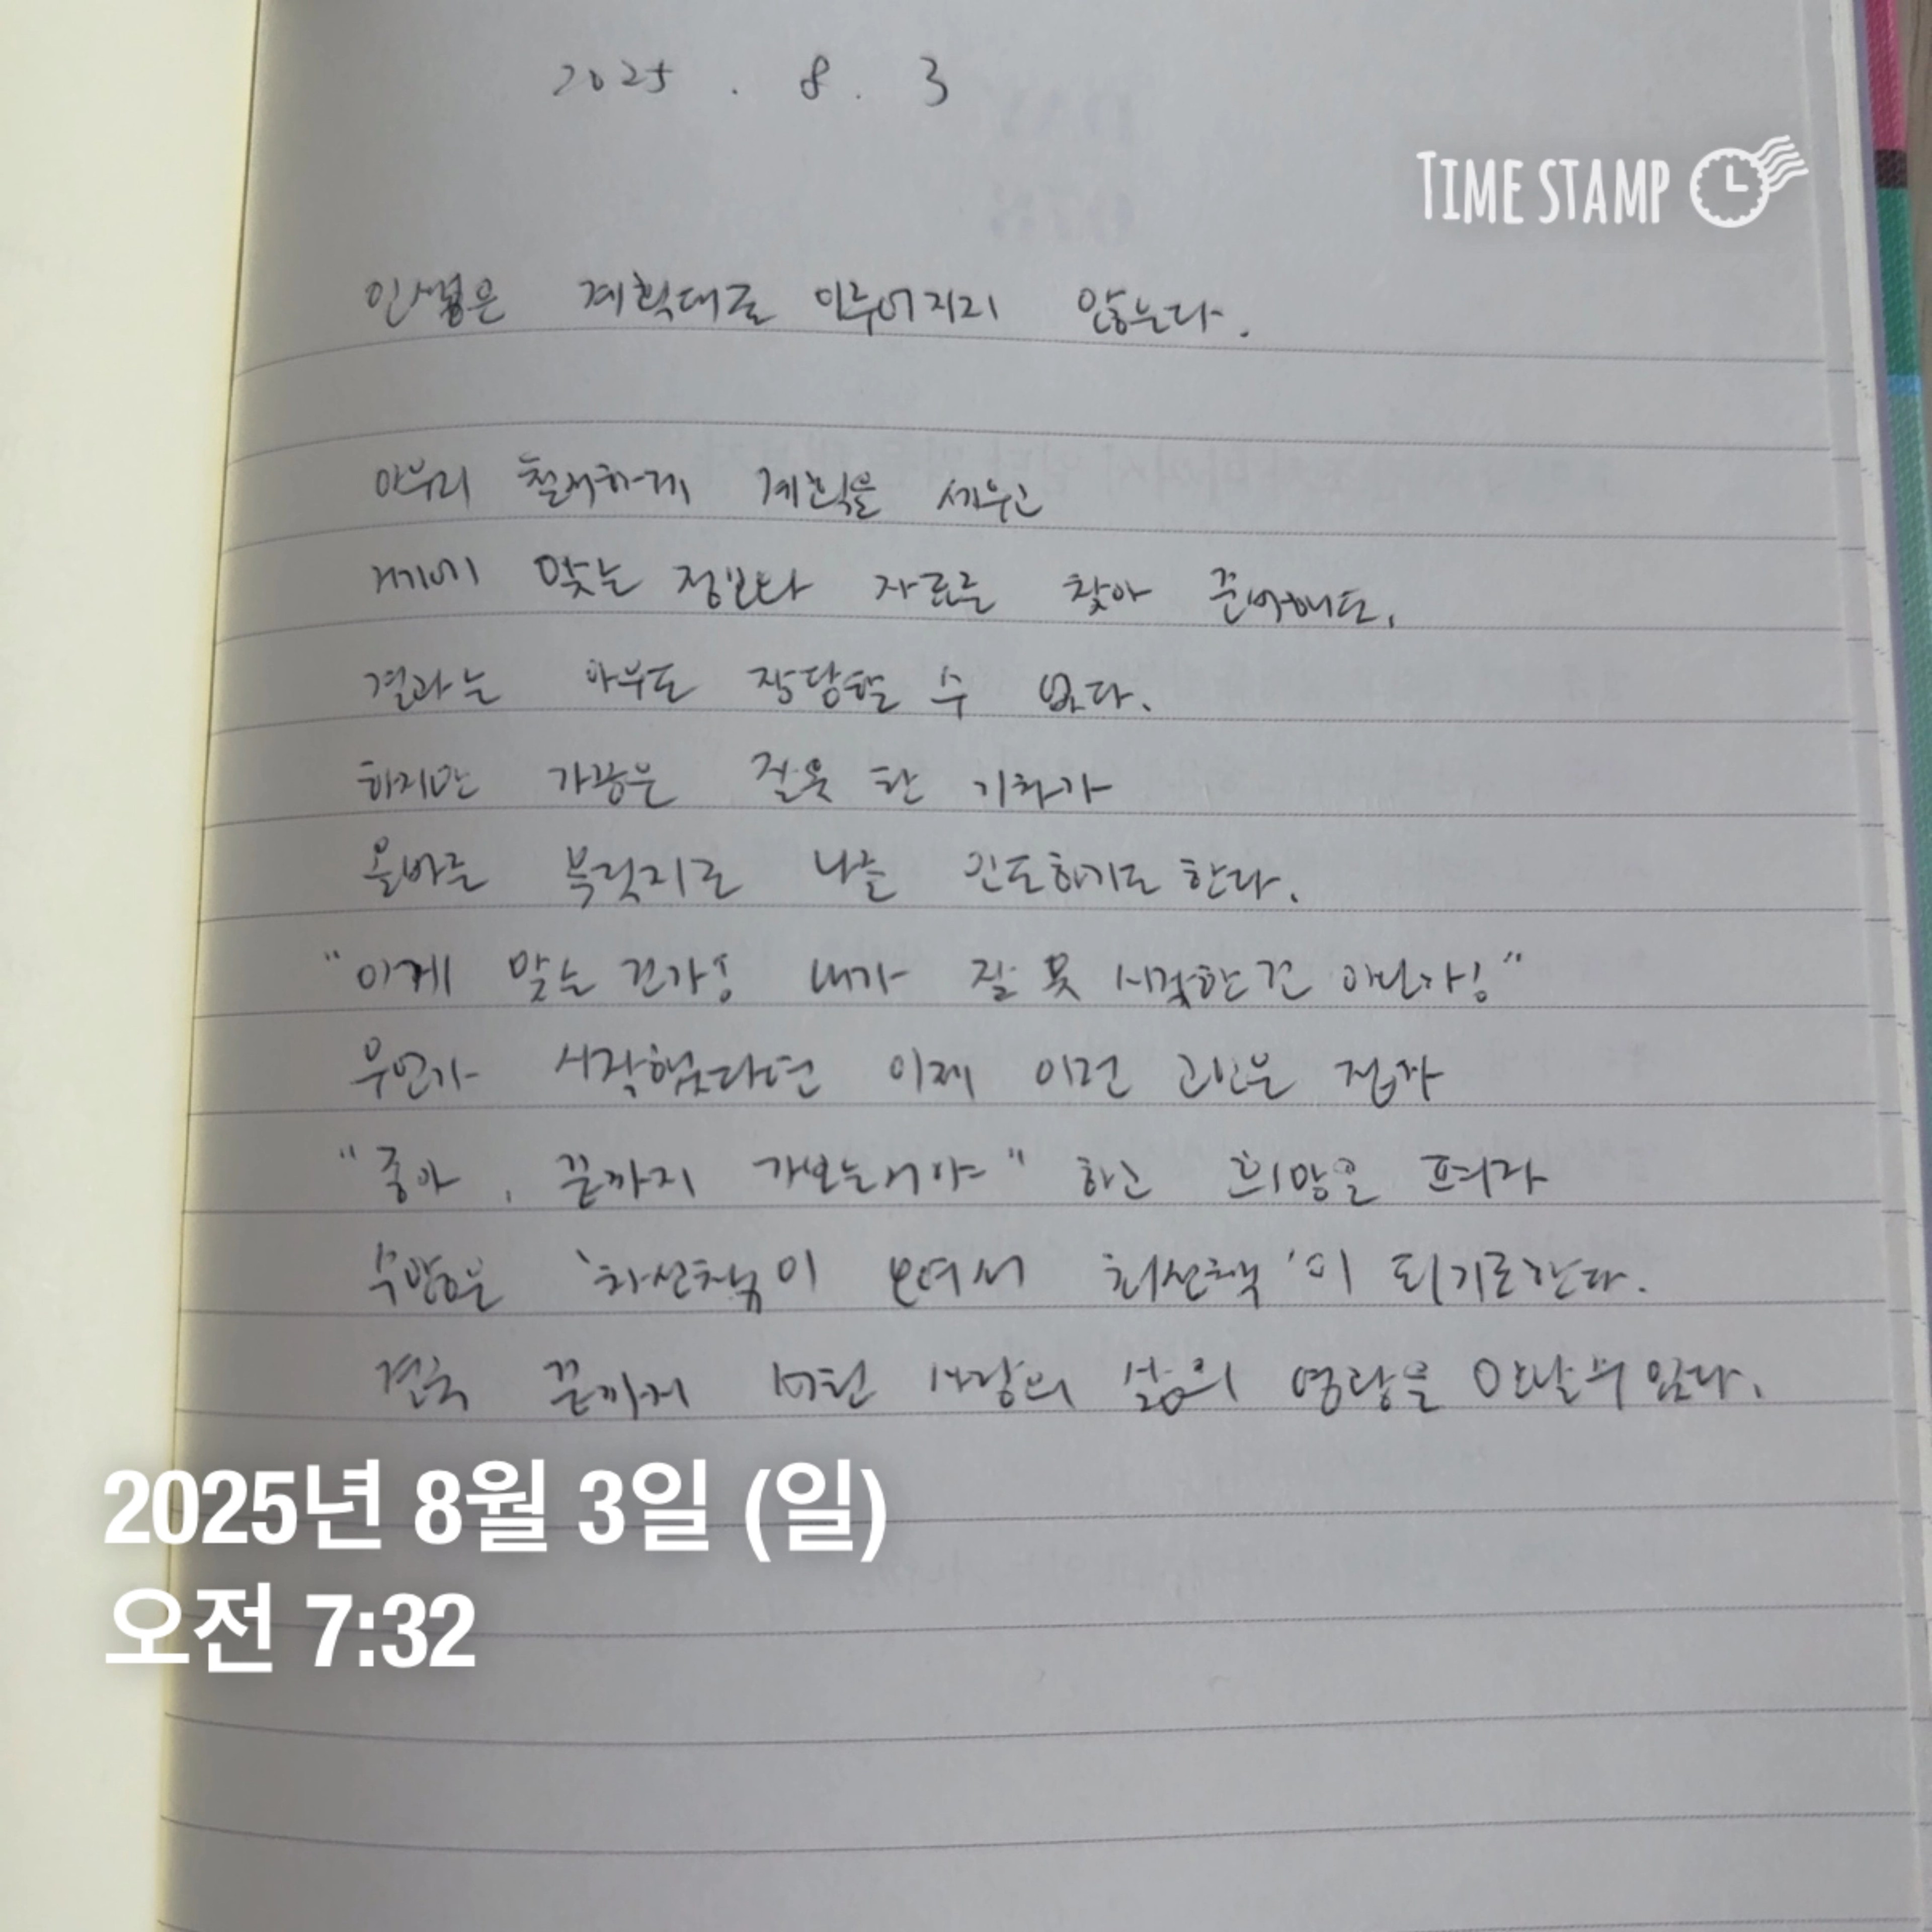 2025 . 8 . 3
TIME STAMP
인생은 계획대로 이루어지지 않는다.
아무리 철저하게 계획을 세우고
맞는 정보와 자료를 찾아 준비해도,
결과는 아무도 장담할 수 없다.
하지만 가끔은 잘못 탄 기차가
올바른 목적지로 나를 인도하기도 한다.
"이게 맞는 건가! 내가 잘 못 시작한건 아닌가!"
무언가 시작했다면 이제 이런 고민은 접자
"좋아, 끝까지 가보는거야" 하고 희망을 펴자
수많은 '차선책이 모여서 최선책'이 되기로한다.
결국 끝까지 버틴 사람의 삶의 영광을 만날수있다.
2025년 8월 3일 (일)
오전 7:32